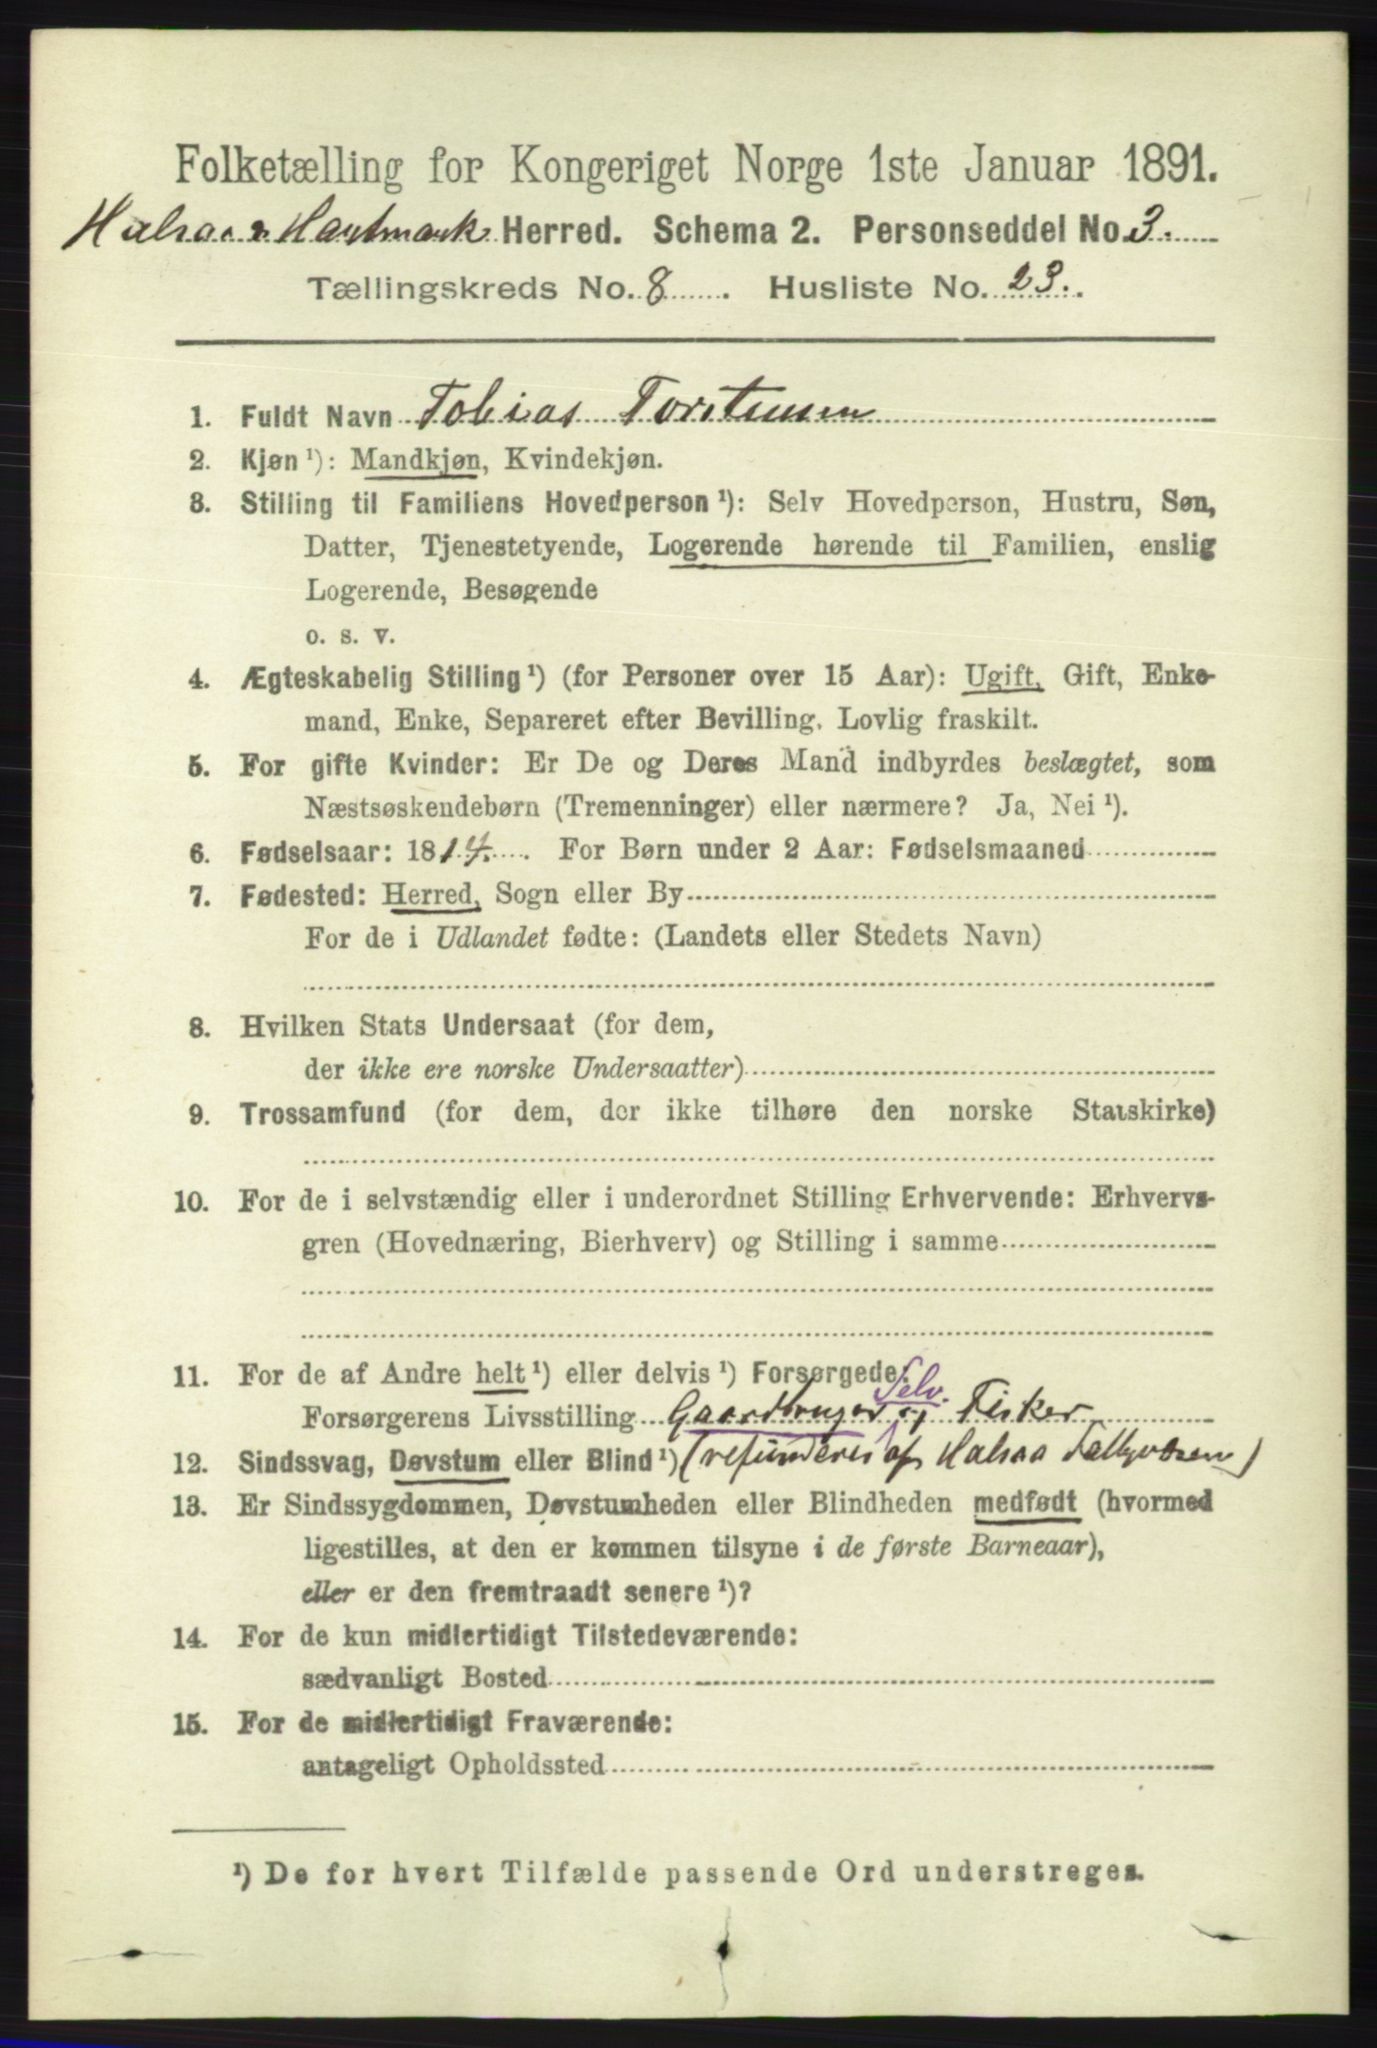 Folketælling for Kongeriget Norge 1ste Januar 1891.
Halsaa & Hartmark Herred. Schema 2. Personseddel No. 3.
Tællingskreds No. 8. Husliste No. 23.
1. Fuldt Navn Tobias Torstensen
2. Kjøn ¹): Mandkjøn, Kvindekjøn.
3. Stilling til Familiens Hovedperson ¹): Selv Hovedperson, Hustru, Søn,
Datter, Tjenestetyende, Logerende hørende til Familien, enslig
Logerende, Besøgende
o. s. v.
4. Ægteskabelig Stilling ¹) (for Personer over 15 Aar): Ugift, Gift, Enke-
mand, Enke, Separeret efter Bevilling. Lovlig fraskilt.
5. For gifte Kvinder: Er De og Deres Mand indbyrdes beslægtet, som
Næstsøskendebørn (Tremenninger) eller nærmere? Ja, Nei ¹).
6. Fødselsaar: 1814. For Børn under 2 Aar: Fødselsmaaned
7. Fødested: Herred, Sogn eller By
For de i Udlandet fødte: (Landets eller Stedets Navn)
8. Hvilken Stats Undersaat (for dem,
der ikke ere norske Undersaatter)
9. Trossamfund (for dem, der ikke tilhøre den norske Statskirke)
10. For de i selvstændig eller i underordnet Stilling Erhvervende: Erhvervs-
gren (Hovednæring, Bierhverv) og Stilling i samme
11. For de af Andre helt ¹) eller delvis ¹) Forsørgede:
Selv.
Forsørgerens Livsstilling Gaardbruger og Fisker
12. Sindssvag, Døvstum eller Blind ¹) (refunderes af Halsaa
13. Er Sindssygdommen, Døvstumheden eller Blindheden medfødt (hvormed
ligestilles, at den er kommen tilsyne i de første Barneaar),
eller er den fremtraadt senere ¹)?
14. For de kun midlertidigt Tilstedeværende:
sædvanligt Bosted
15. For de midlertidigt Fraværende:
antageligt Opholdssted
¹) De for hvert Tilfælde passende Ord understreges.